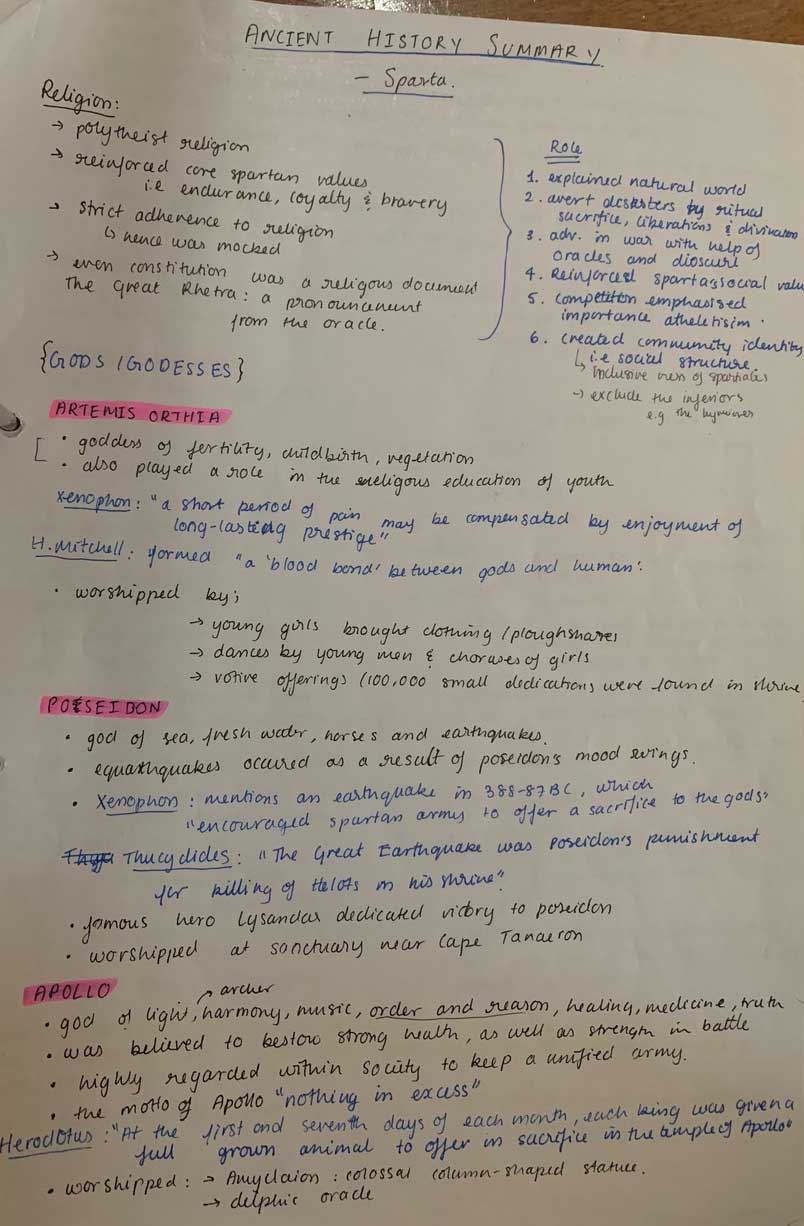 ANCIENT HISTORY SUMMARY
- Sparta.
Religion:
→ polytheist religion
→ reinforced core spartan values
i.e endurance, loyalty & bravery
→ strict adherence to religion
↳ hence was mocked
→ even constitution was a religous document
The Great Rhetra: a pronouncement
from the oracle.
Role
1. explained natural world
2. avert disasters by ritual
sacrifice, liberations & divination
3. adv. in war with help of
oracles and dioscuri
4. Reinforced spartas social valu
5. competition emphasised
importance atheletisim.
6. created community identity
↳ i.e social structure.
↳ inclusive ness of spartiates
→ exclude the inferiors
e.g the
{GODS / GODESSES}
ARTEMIS ORTHIA
• goddess of fertility, childbirth, vegetation
• also played a role in the religous education of youth
Xenophon: "a short period of pain may be compensated by enjoyment of
long-lasting prestige"
H. Mitchell: formed "a 'blood bond' between gods and human'.
• worshipped by;
→ young girls brought clothing / ploughshares
→ dances by young men & choruses of girls
→ votive offerings (100,000 small dedications were found in shrine
POSEIDON
• god of sea, fresh water, horses and earthquakes.
• equathquakes occured as a result of poseidon's mood swings.
• Xenophon: mentions an earthquake in 388-87BC, which
"encouraged spartan armys to offer a sacrifice to the gods"
Thucydides: "The Great Earthquake was Poseidon's punishment
for killing of Helots in his shrine".
• famous hero Lysandar dedicated victory to poseidon
• worshipped at sanctuary near Cape Tanaeron
APOLLO
archer
• god of light, harmony, music, order and reason, healing, medicine, truth
• was believed to bestow strong health, as well as strength in battle
• highly regarded within society to keep a unified army.
• the motto of Apollo "nothing in excess"
Herodotus: "At the first and seventh days of each month, each king was given a
full grown animal to offer in sacrifice in the temple of Apollo"
• worshipped: → Amyclaion: colossal column-shaped statue.
→ delphic oracle